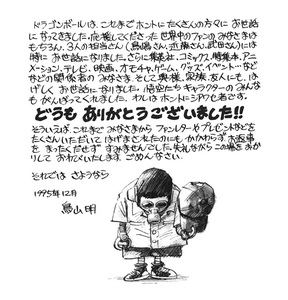 ドラゴンボールは、これまでホントにたくさんの方々にお世話
になってきました。応援してくださった世界中のファンのみなさまは
もちろん、3人の担当さん(鳥嶋さん、近藤さん、武田さん)には
特にお世話になりました。さらに集英社、コミックス、特集本、アニ
メーション、テレビ、映画、おもちゃ、ゲーム、グッズ、イベント…など
などの関係者のみなさま、そして奥様、家族、友人にも、は
げしくお世話になりました。悟空たちキャラクターのみんな
もがんばってくれました。わしはホントにシアワセ者です。
どうもありがとうございました!!
そういえば、これまでみなさまからファンレターやプレゼントなどを
たくさんいただいて、はげまされたのにもかかわらず、お返事
をまったくだせずすみませんでした。失礼ながらこの場をおか
りしておれいいたします。ごめんなさい。
それでは さようなら
1995年12月
鳥山明